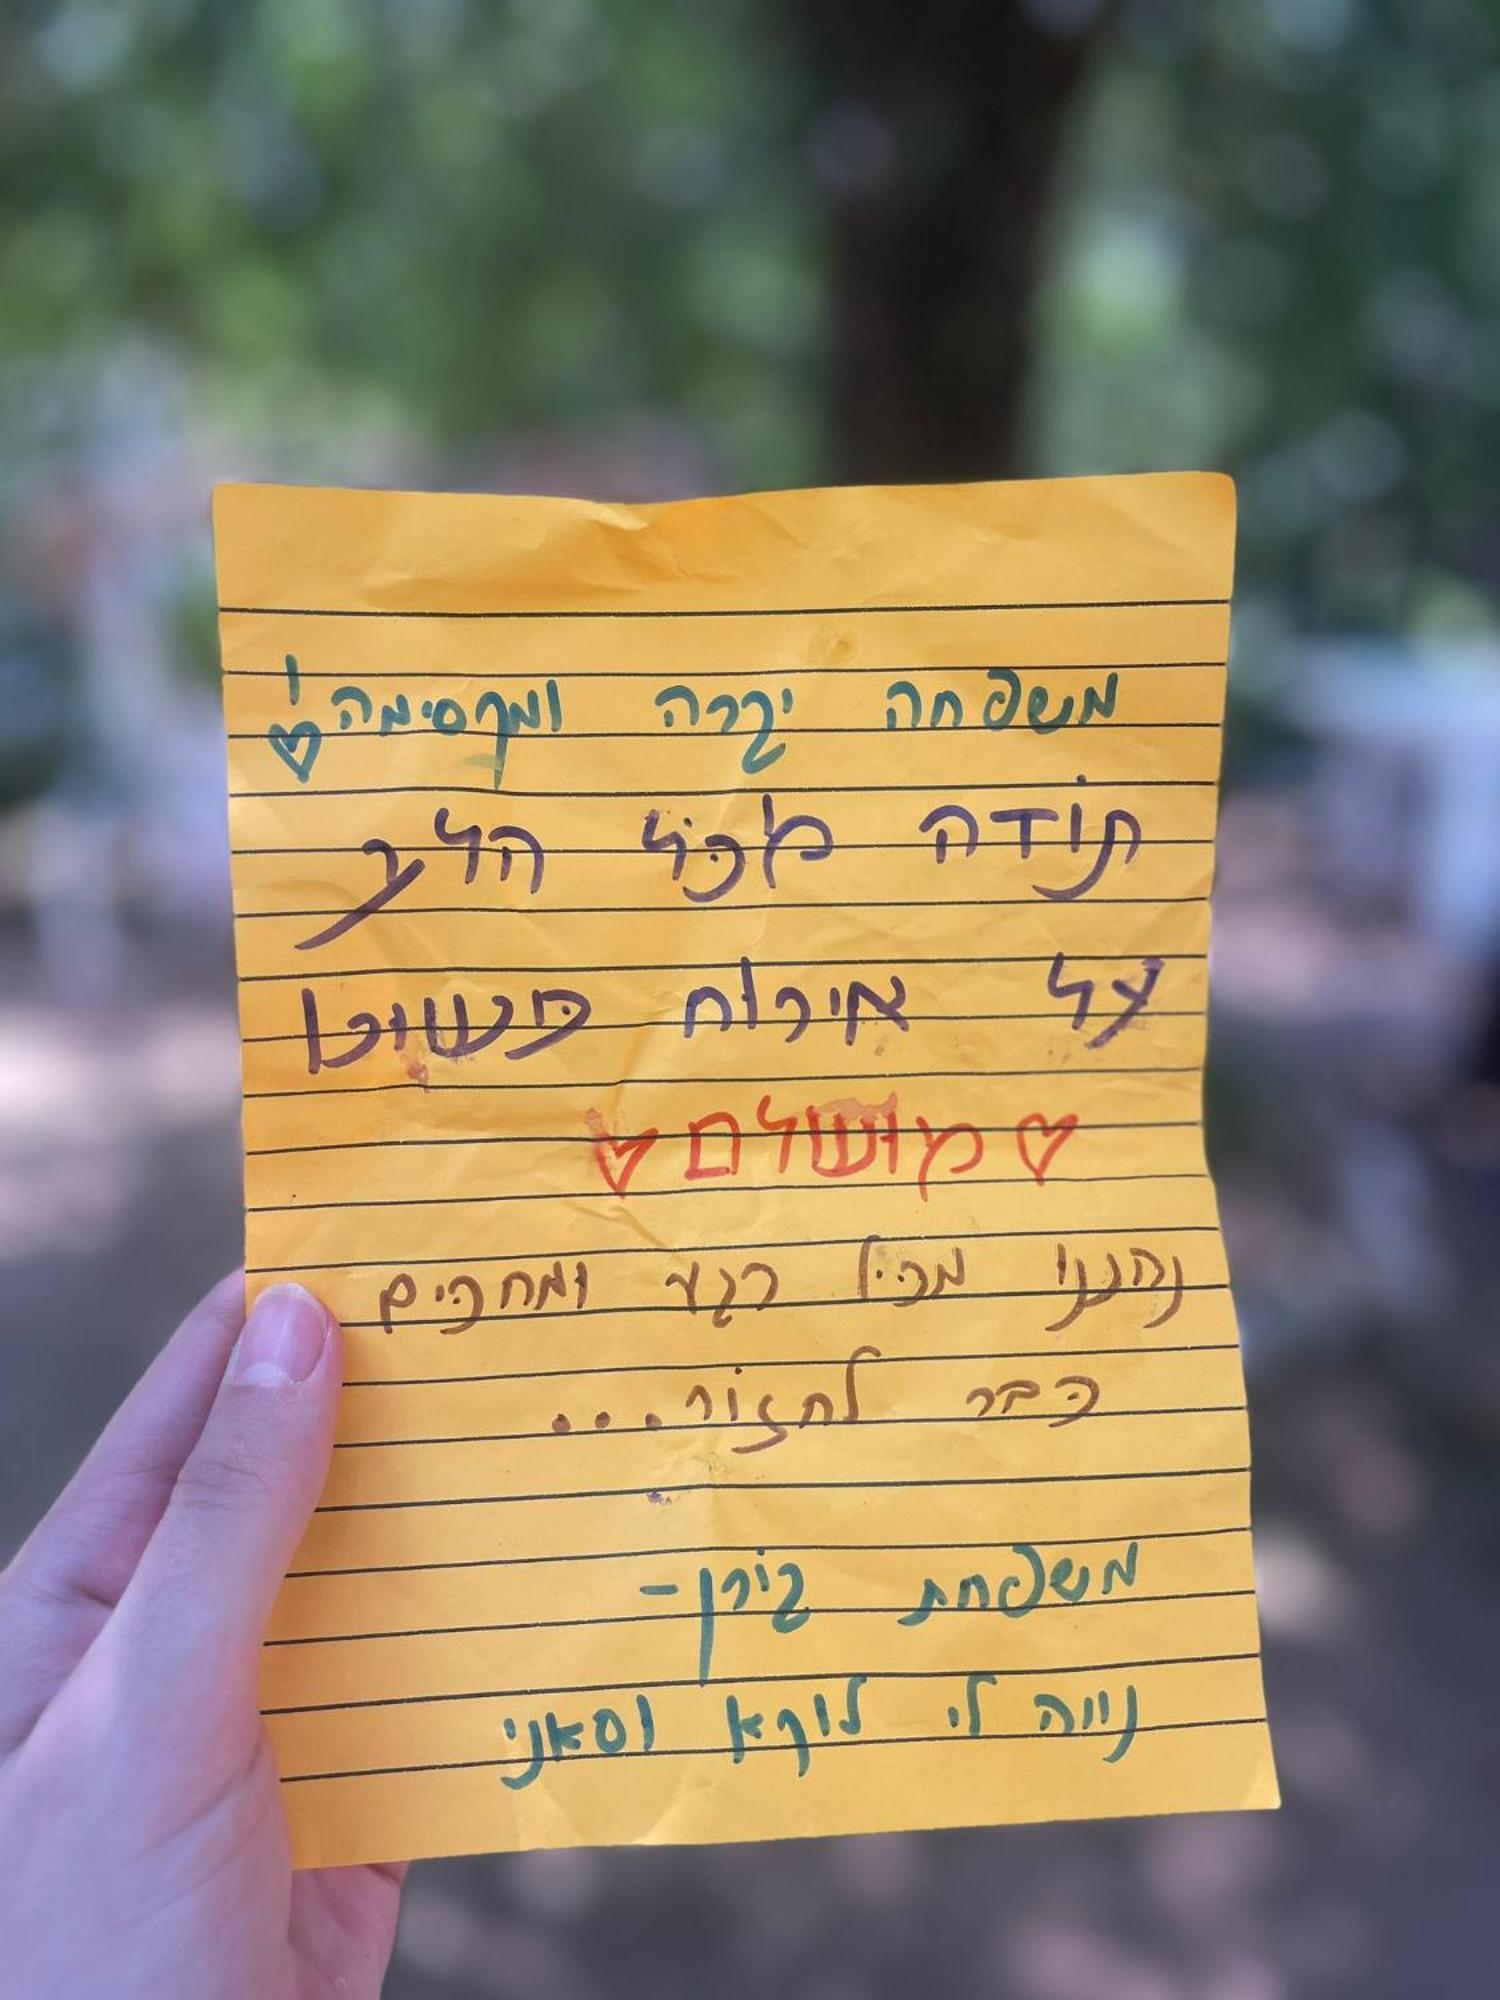 משפחה יקרה ומקסימה!
תודה מכל הלב
על אירוח פשוט
מושלם
נהננו מכל רגע ומחכים
כבר לחזור...
משפחת בורן-
נווה לי לוקא וסאני